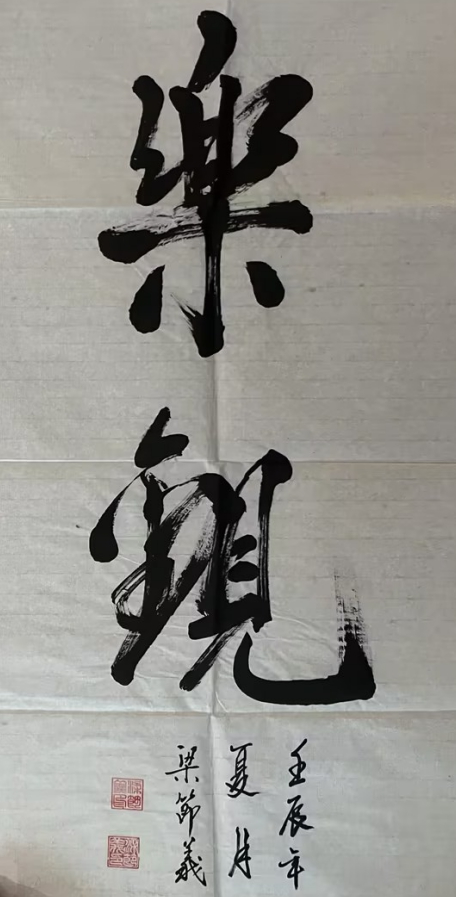 樂觀
壬辰年
夏月
梁節義